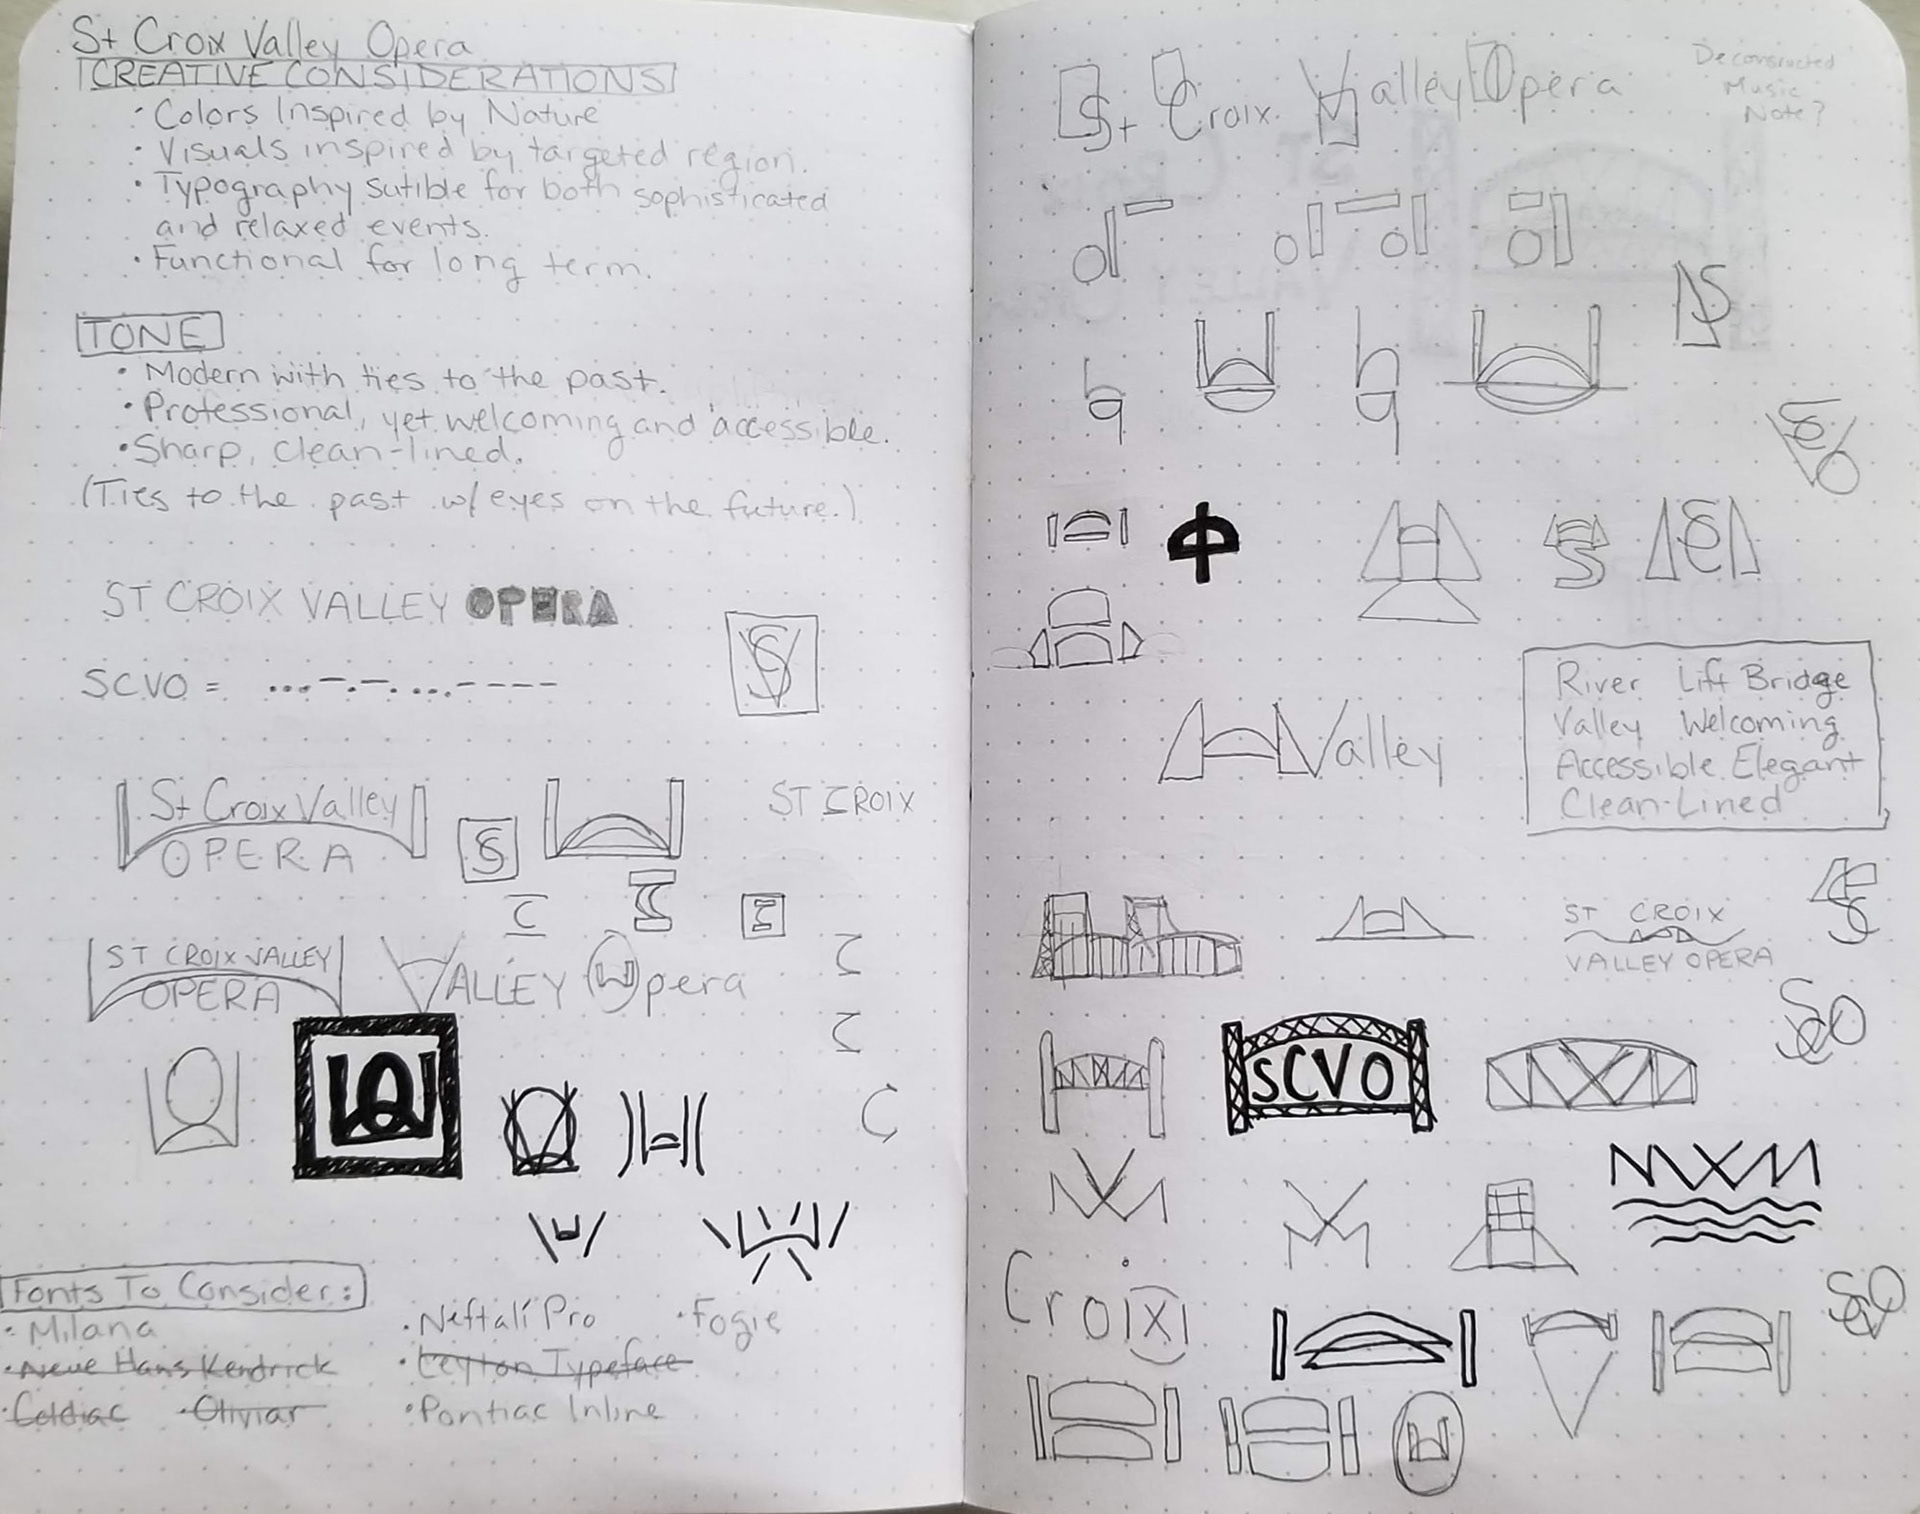 St Croix Valley Opera
CREATIVE CONSIDERATIONS
· Colors Inspired by Nature
· Visuals inspired by targeted region.
· Typography sutible for both sophisticated
and relaxed events.
· Functional for long term.
TONE
· Modern with ties to the past.
· Professional, yet welcoming and accessible.
· Sharp, clean-lined.
(Ties to the past w/ eyes on the future.)
ST CROIX VALLEY OPERA
SCVO = ...-.-. ...- ---
St Croix Valley
OPERA
ST CROIX
ST CROIX VALLEY
OPERA
VALLEY Opera
Fonts To Consider:
· Milana
· Neue Hans Kendrick
· Celdiac · Oliviar
· Neftalí Pro
· Leyton Typeface
· Pontiac Inline
· Fogie
St Croix Valley Opera
Deconstructed
Music
Note?
Valley
River Lift Bridge
Valley Welcoming
Accessible Elegant
Clean-Lined
ST CROIX
VALLEY OPERA
SCVO
Croix